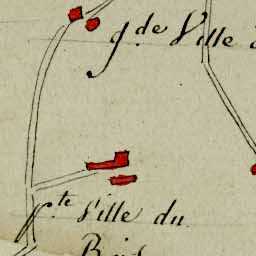 g.de Ville
p.te Ville du
Bois